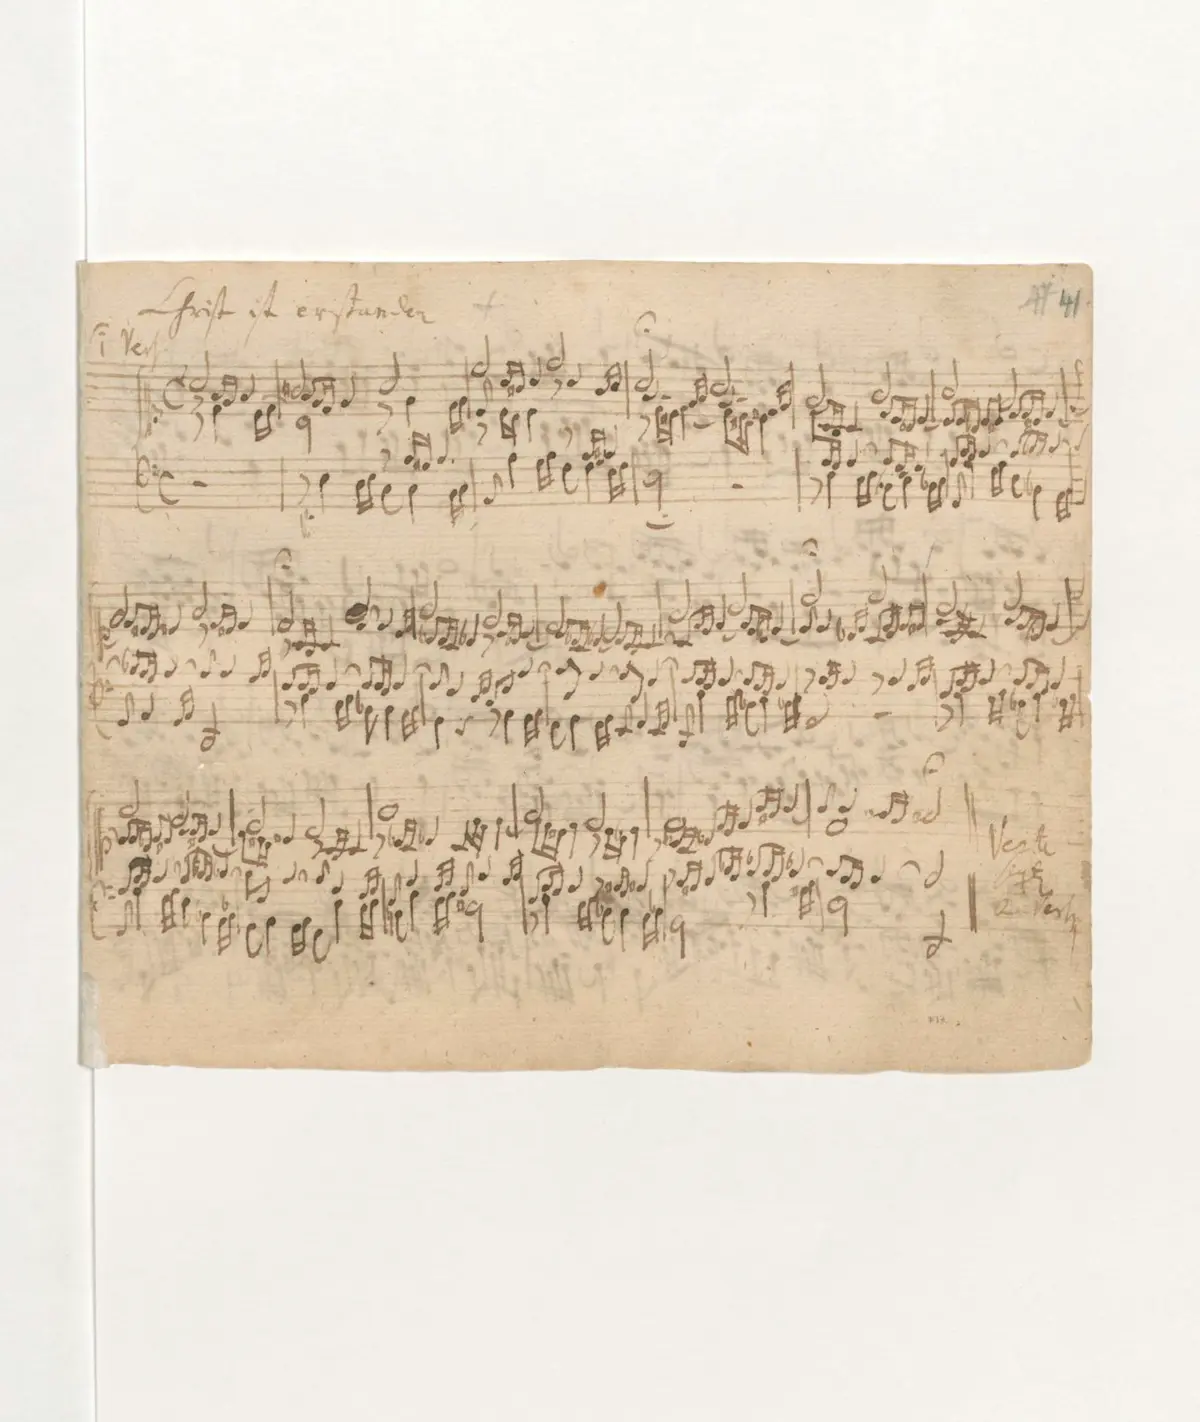 Christ ist erstanden
41
1 Vers
Verte
2 Vers